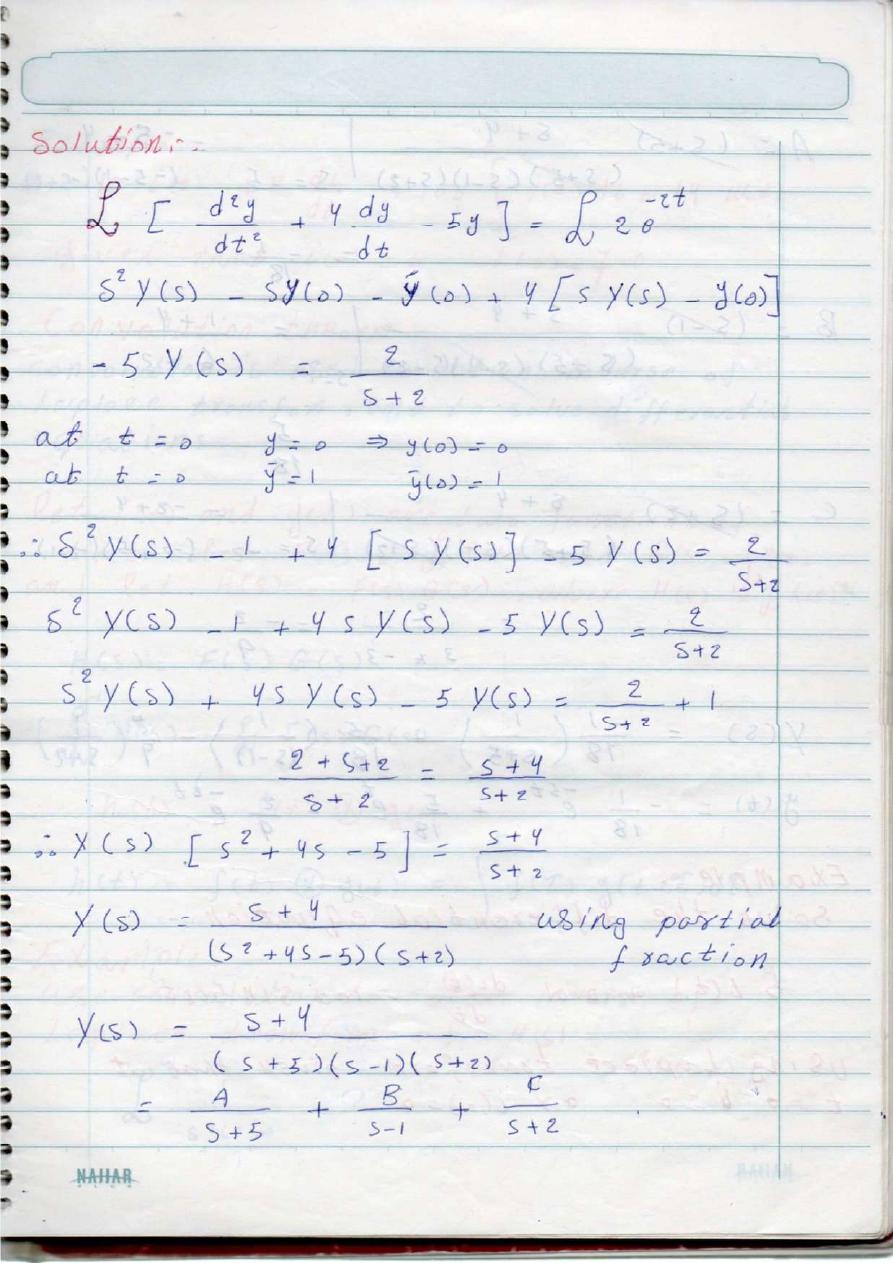 Solution:-
ℒ [ d²y/dt² + 4 dy/dt - 5y ] = ℒ 2e^-2t
S² Y(S) - Sy(0) - ȳ(0) + 4 [ S Y(S) - y(0) ]
- 5 Y(S) = 2/(S+2)
at t = 0 y = 0 ⇒ y(0) = 0
at t = 0 ȳ = 1 ȳ(0) = 1
∴ S² Y(S) - 1 + 4 [ S Y(S) ] - 5 Y(S) = 2/(S+2)
S² Y(S) - 1 + 4 S Y(S) - 5 Y(S) = 2/(S+2)
S² Y(S) + 4S Y(S) - 5 Y(S) = 2/(S+2) + 1
(2+S+2)/(S+2) = (S+4)/(S+2)
∴ Y(S) [ S² + 4S - 5 ] = (S+4)/(S+2)
Y(S) = (S+4)/((S²+4S-5)(S+2)) using partial
fraction
Y(S) = (S+4)/((S+5)(S-1)(S+2))
= A/(S+5) + B/(S-1) + C/(S+2)
NAJJAR